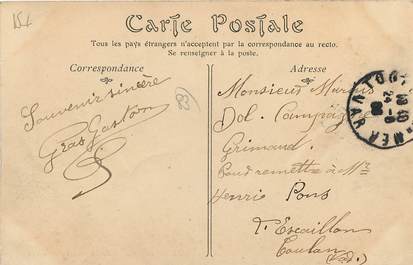 Carte Postale
Tous les pays étrangers n'acceptent pas la correspondance au recto.
Se renseigner à la poste.
Correspondance
Adresse
Souvenir sincère
Gras Gaston
Monsieur Marius
Dol.
Grimaud
Pour remettre à Mr
Henric Pons
L'Escaillon
Toulon
(Var)
MER
VAR